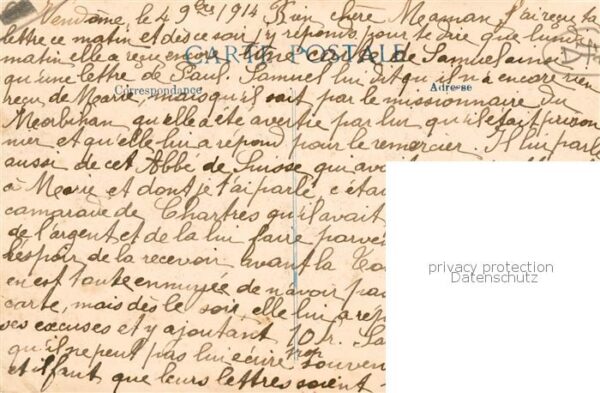 Vendôme, le 4 9bre 1914 Bien chère Maman, J'ai reçu ta
lettre ce matin et dès ce soir j'y réponds pour te dire que lundi
matin elle a reçu encore une carte de Samuel ainsi
CARTE POSTALE
qu'une lettre de Paul. Samuel lui dit qu'il n'a encore rien
Correspondance
Adresse
reçu de Marie, mais qu'il sait par le missionnaire du
Morbihan qu'elle a été avertie par lui qu'il était prison
nier et qu'elle lui a répond pour le remercier. Il lui parle
aussi de cet Abbé de Suisse qui avait
à Marie et dont je t'ai parlé, c'était
camarade de Chartres qu'il avait
de l'argent et de la lui faire parve
l'espoir de la recevoir avant la
en est toute ennuyée de n'avoir pas
carte, mais dès le soir elle lui a rép
ses excuses et y ajoutant 10 fr.
qu'il ne peut pas lui écrire trop souven
et il faut que leurs lettres soient
privacy protection
Datenschutz